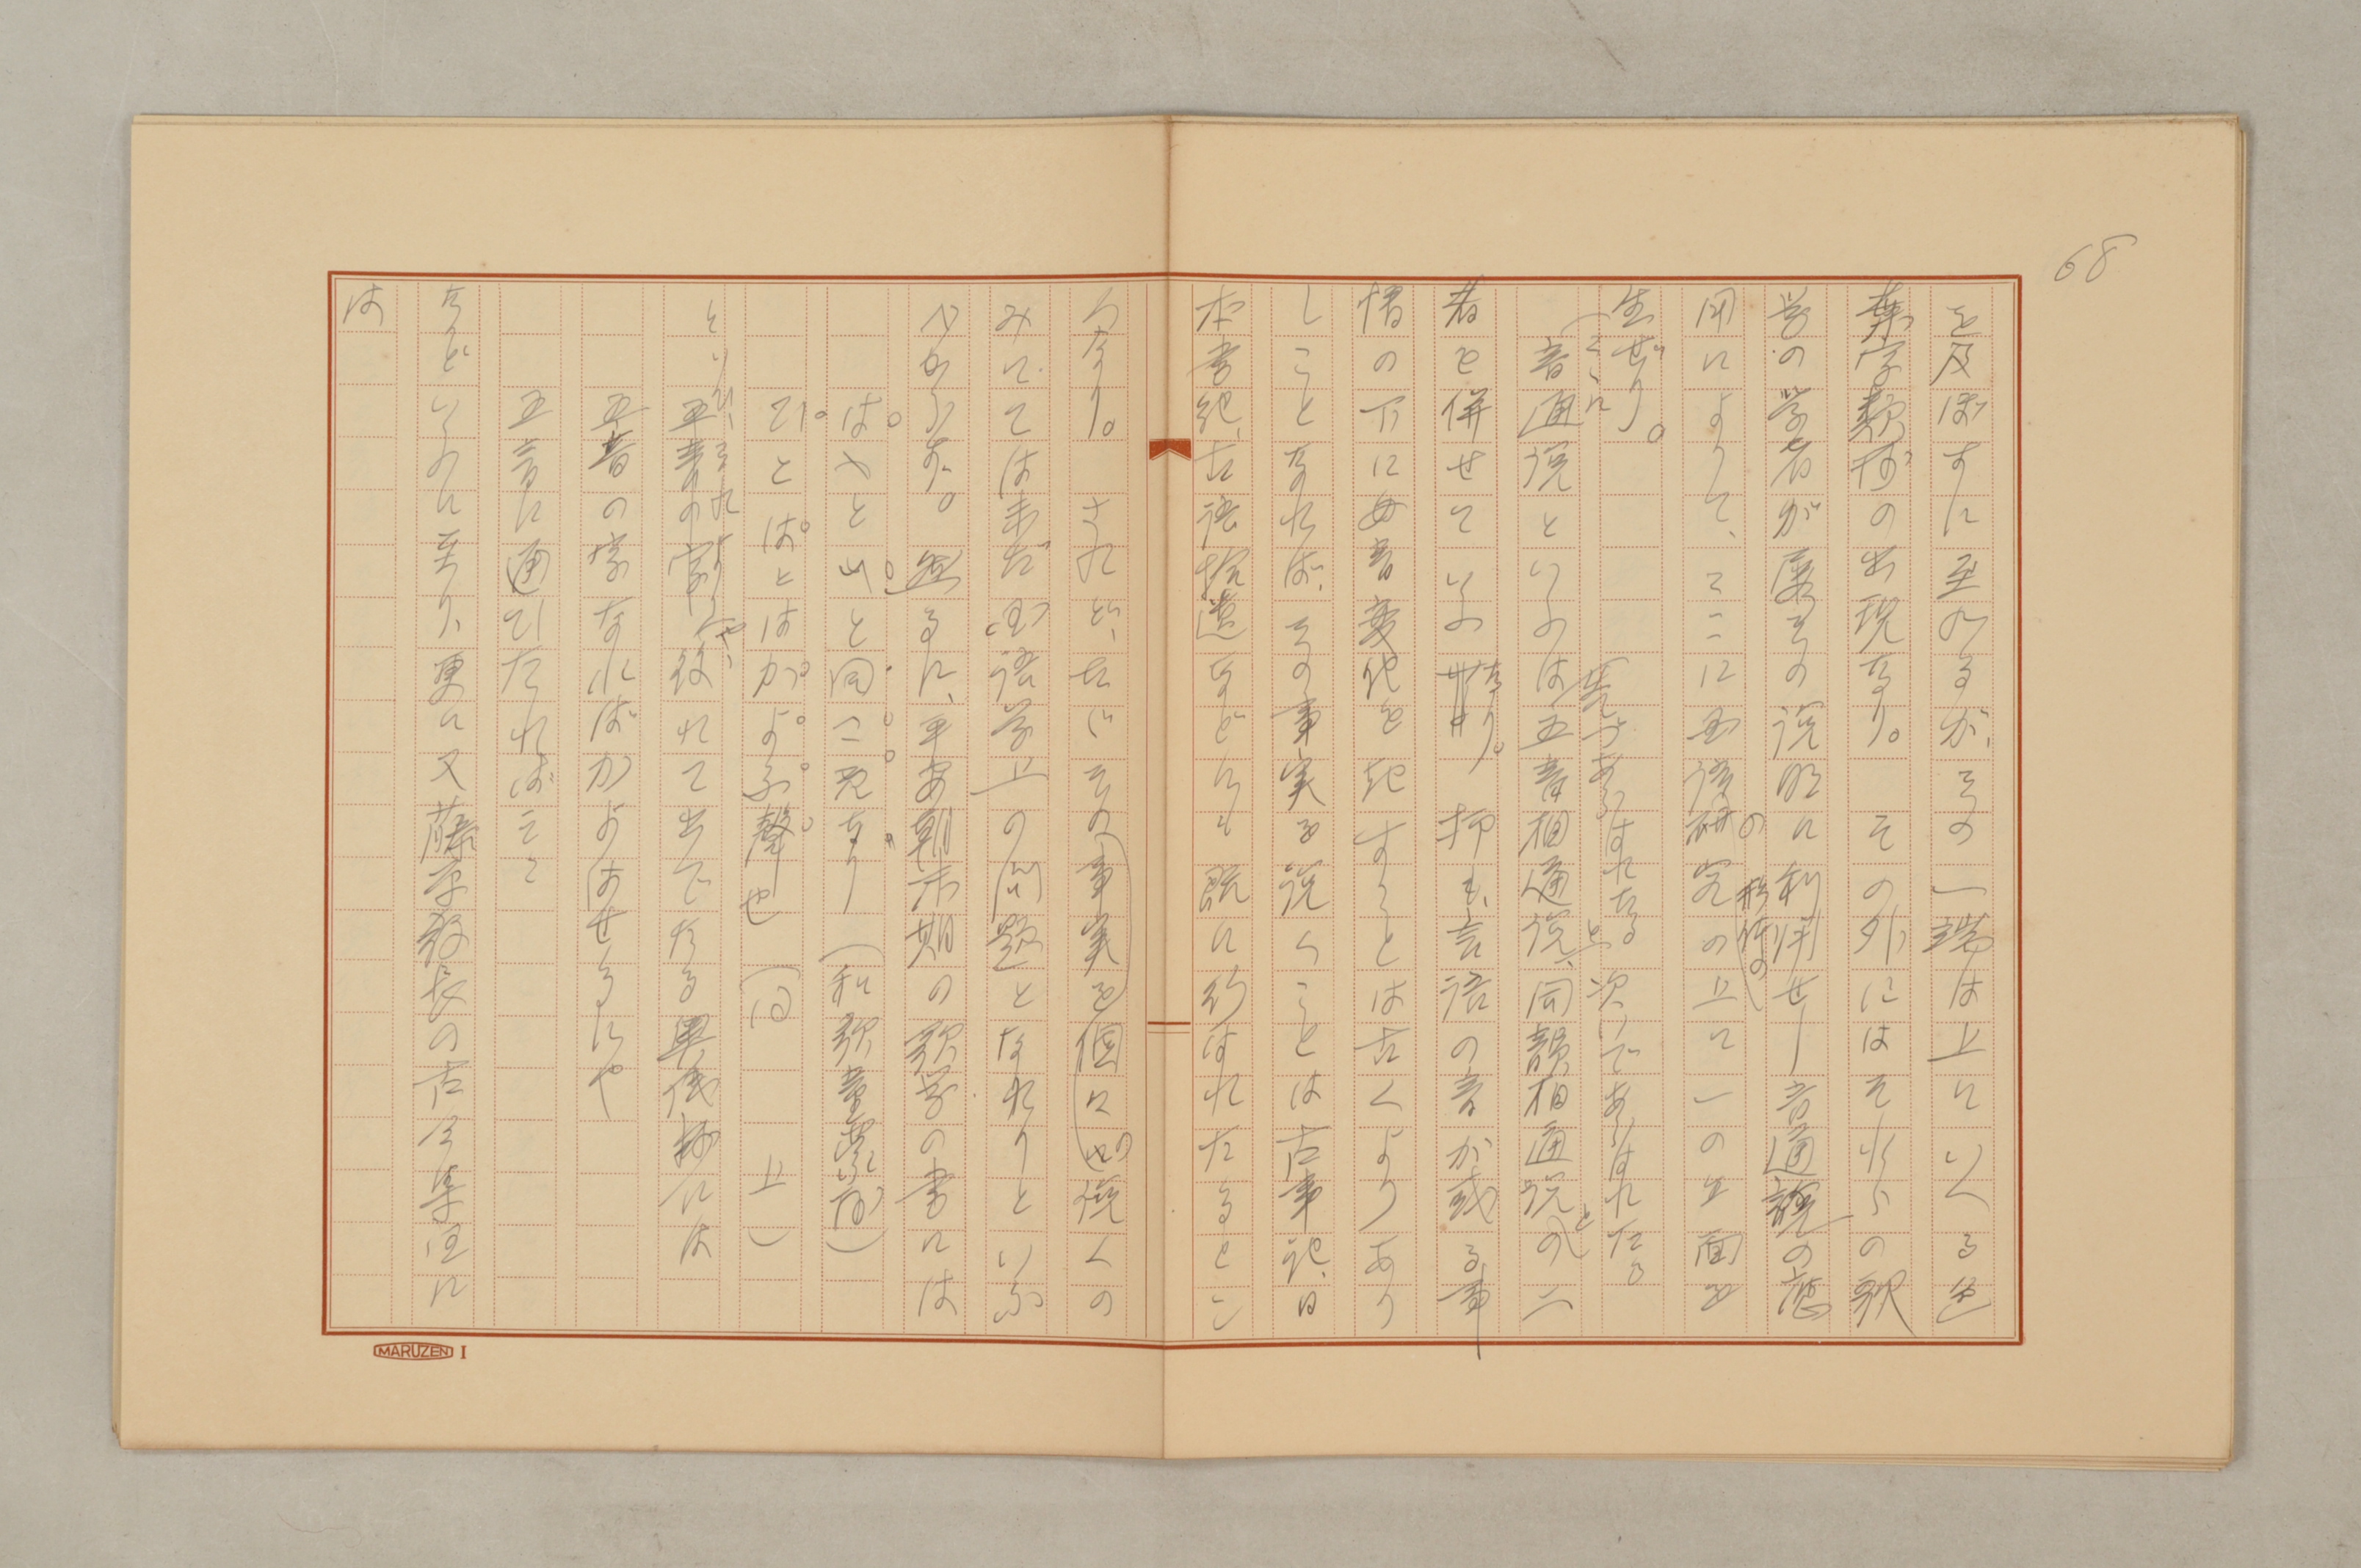 68
を及ぼすに至れるが、その一端は上にいへる色
葉字類抄の出現なり。 その外にはそれらの歌
学の学者が屡その説明に利用せし音通説の應
用によりて、ここに国語研究の上に一の方面を
生ぜり。
音通説といふは五音相通説、同韻相通説の二
者を併せていふなり。抑も言語の音が或る事
情の下に母音変化を起すことは古くよりあり
しことなれば、その事実を説くことは古事記、日
本書紀、古語拾遺などにも既に行はれたるとこ
ろなり。 されど、たゞその事実を個々に説くの
みにては未だ国語学上の問題となれりといふ
べからず。 然るに、平安朝末期の歌学の書には
はゝと山と同二。見なり(和歌童蒙抄)
ひとばとはかよふ聲也 (同 上)
といひ、それより後れて出でたる奥儀抄には
五音の字なればかよはせるにや
五音に通ひたればこそ
などいふに至り、更に又藤原教長の古今集注に
は
MARUZEN I